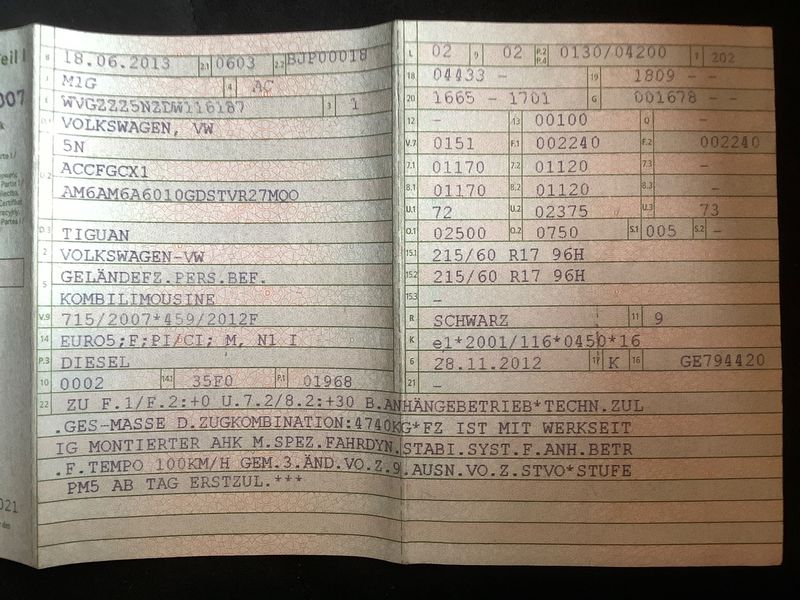 Teil I
007
021
B 18.06.2013 2.1 0603 2.2 BJP00018
J M1G 4 AC
E WVGZZZ5NZDW116187 3 1
D.1 VOLKSWAGEN, VW
5N
D.2 ACCFGCX1
AM6AM6A6010GDSTVR27MOO
D.3 TIGUAN
2 VOLKSWAGEN-VW
5 GELÄNDEFZ.PERS.BEF.
KOMBILIMOUSINE
V.9 715/2007*459/2012F
14 EURO5;F;PI/CI; M, N1 I
P.3 DIESEL
10 0002 14.1 35F0 P.1 01968
L 02 9 02 P.2 P.4 0130/04200 T 202
18 04433 - 19 1809 - -
20 1665 - 1701 G 001678 - -
12 - 13 00100 Q -
V.7 0151 F.1 002240 F.2 002240
7.1 01170 7.2 01120 7.3 -
8.1 01170 8.2 01120 8.3 -
U.1 72 U.2 02375 U.3 73
O.1 02500 O.2 0750 S.1 005 S.2 -
15.1 215/60 R17 96H
15.2 215/60 R17 96H
15.3 -
R SCHWARZ 11 9
K e1*2001/116*0450*16
6 28.11.2012 17 K 16 GE794420
21 -
22 ZU F.1/F.2:+0 U.7.2/8.2:+30 B.ANHÄNGEBETRIEB*TECHN.ZUL
.GES-MASSE D.ZUGKOMBINATION:4740KG*FZ IST MIT WERKSEIT
IG MONTIERTER AHK M.SPEZ.FAHRDYN.STABI.SYST.F.ANH.BETR
.F.TEMPO 100KM/H GEM.3.ÄND.VO.Z.9.AUSN.VO.Z.STVO*STUFE
PM5 AB TAG ERSTZUL.***